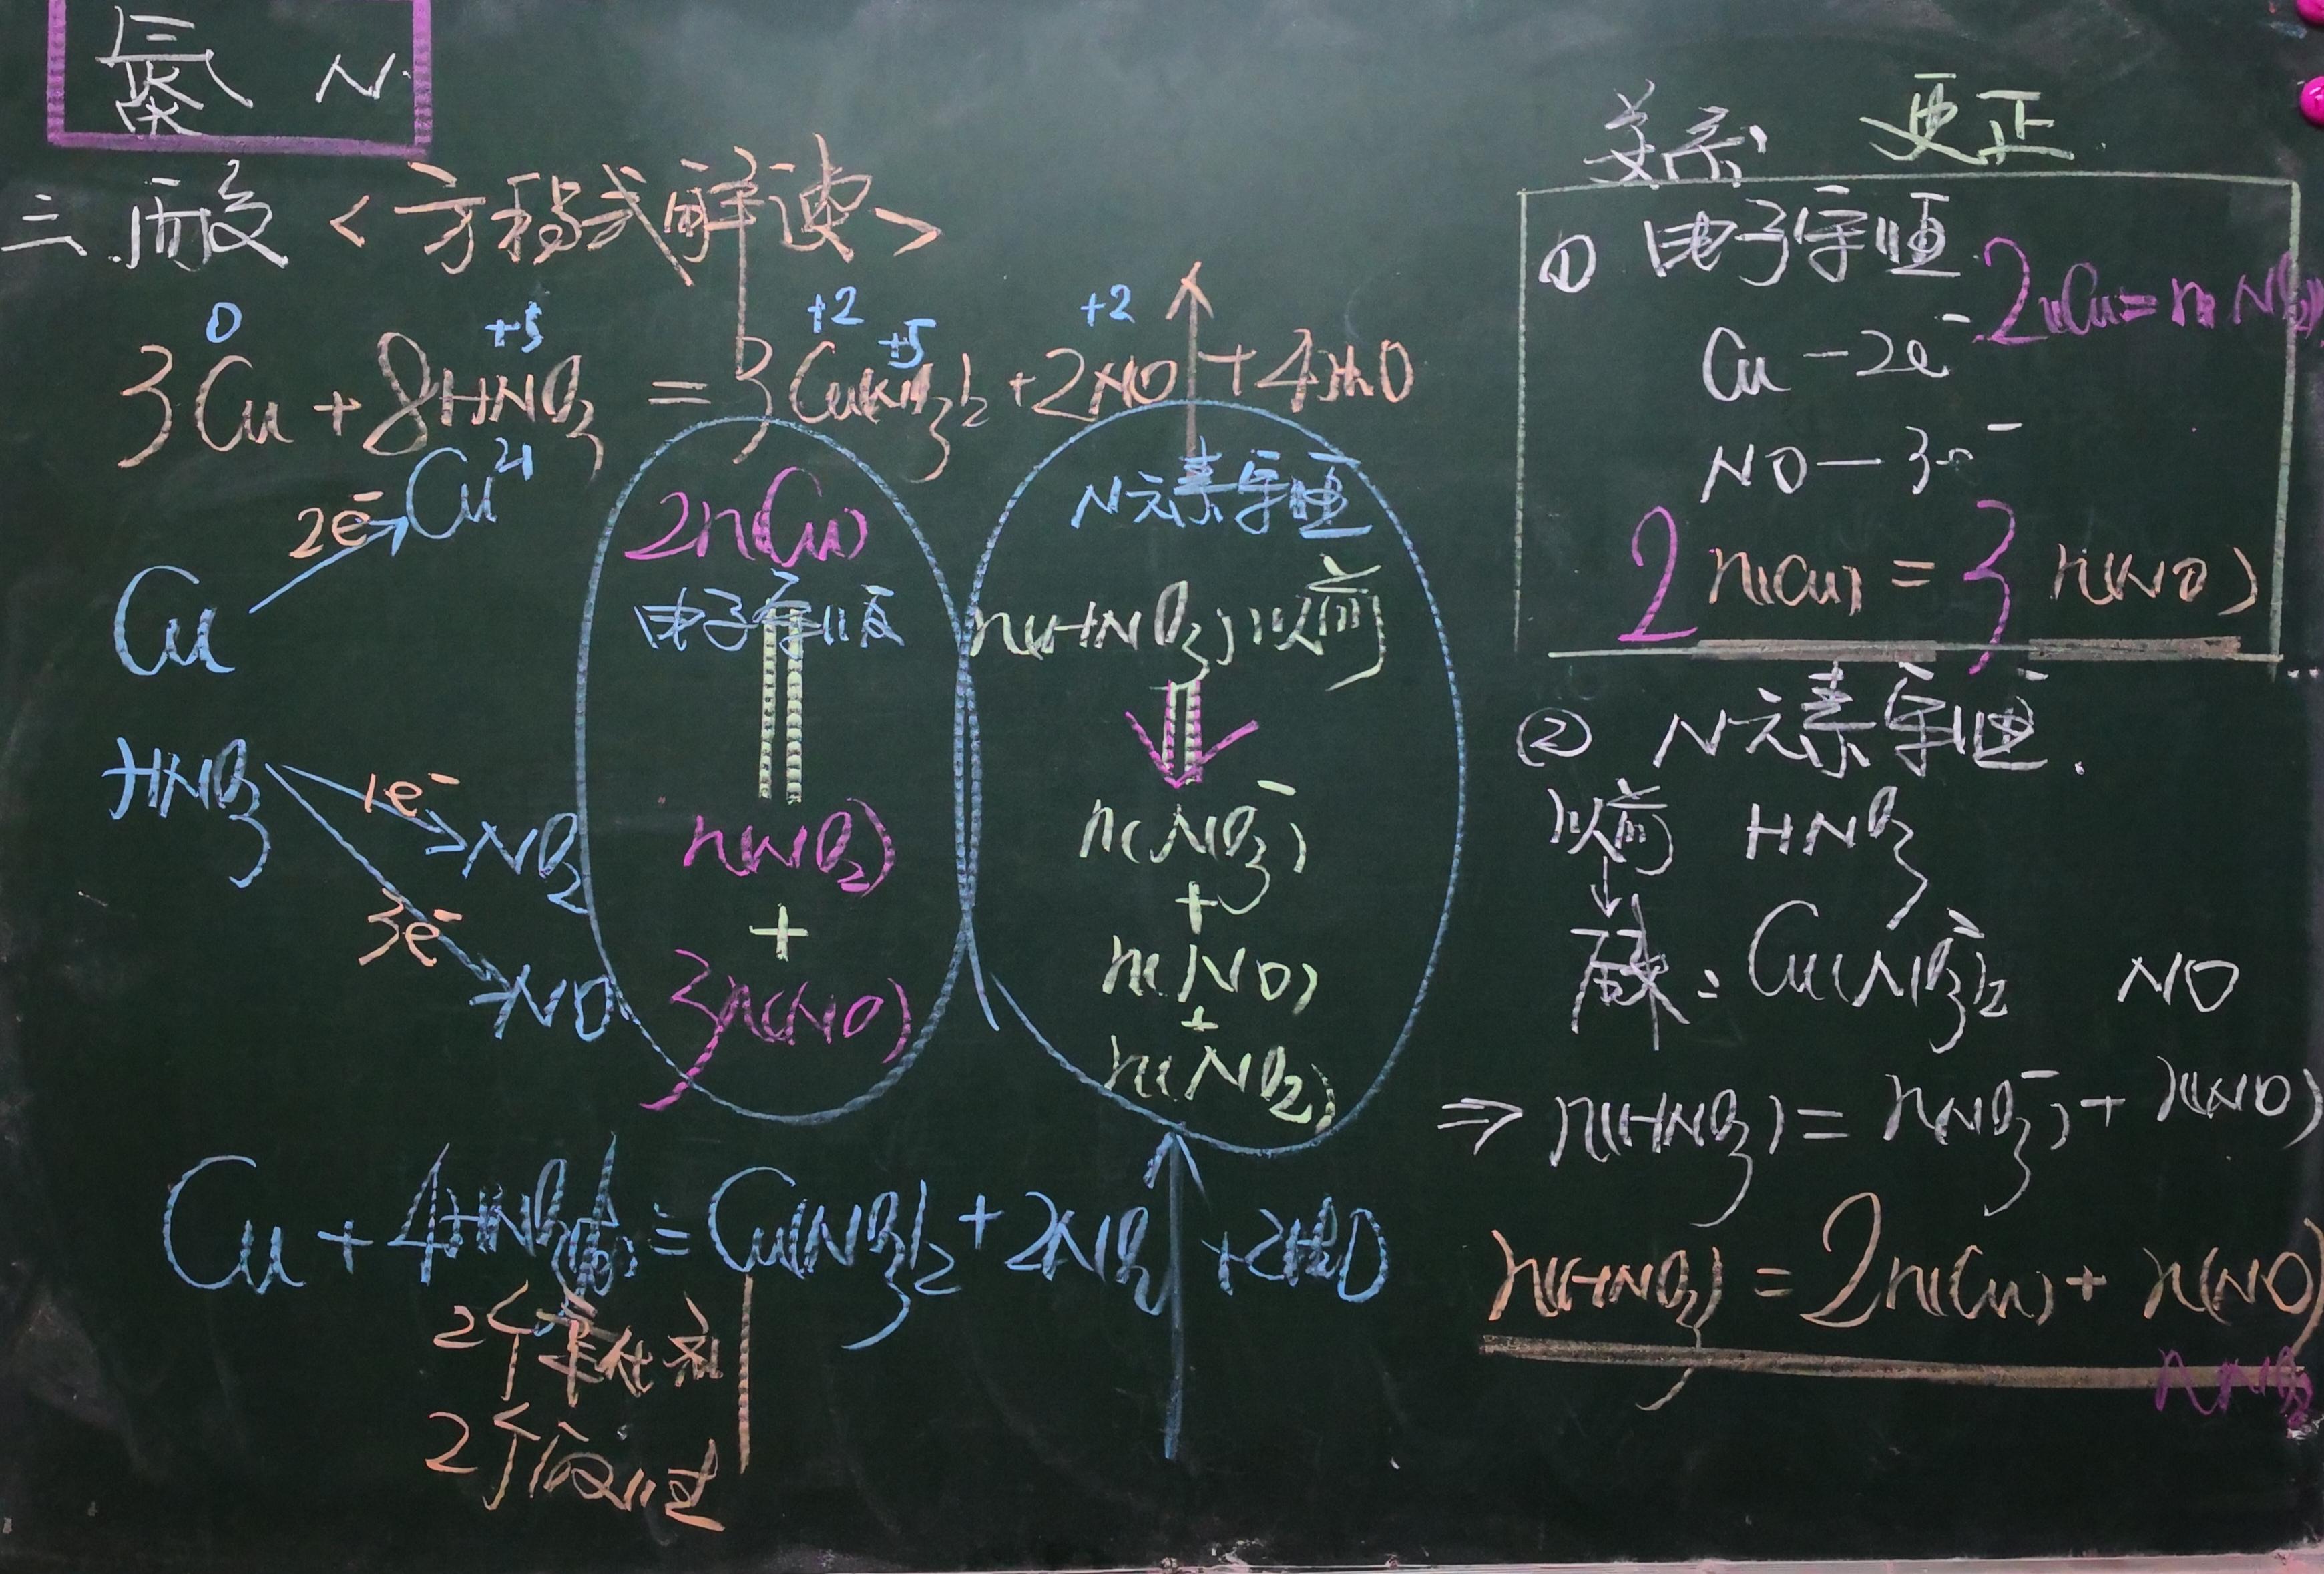 氮 N
三.硝酸<方程式解读>
0 +5 +2 +5 +2
3Cu+8HNO3=3Cu(NO3)2+2NO↑+4H2O
2e⁻ Cu²⁺
Cu
HNO3
1e⁻
NO2
3e⁻
NO
2n(Cu)
电子守恒
n(NO2)
+
3n(NO)
N元素守恒
n(HNO3)以前
n(NO3⁻)
+
n(NO)
+
n(NO2)
Cu+4HNO3(浓)=Cu(NO3)2+2NO2↑+2H2O
2个氧化剂
2个
关系 更正
① 电子守恒
Cu-2e⁻
2nCu=n
NO-3e⁻
2n(Cu)=3n(NO)
② N元素守恒.
以前 HNO3
↓
: Cu(NO3)2 NO
⇒n(HNO3)=n(NO3⁻)+n(NO)
n(HNO3)=2n(Cu)+n(NO)
nNO2